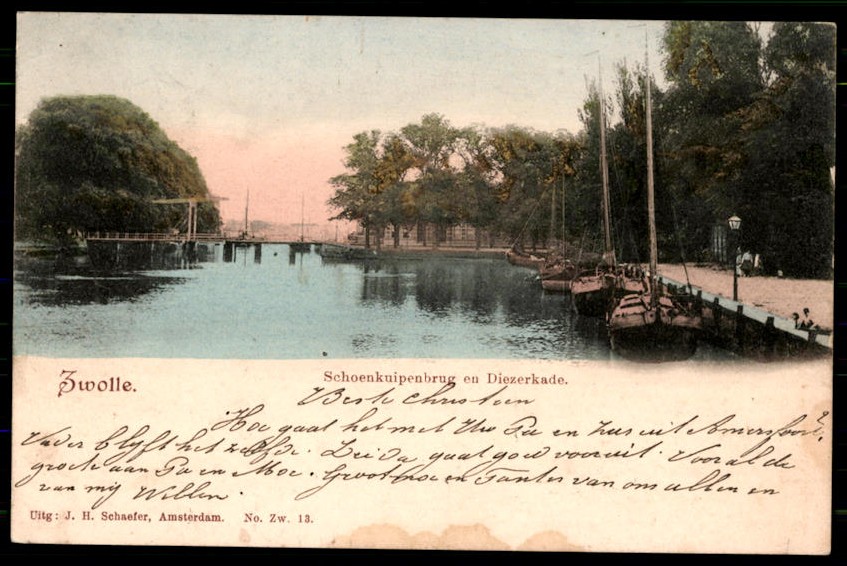 Zwolle.
Schoenkuipenbrug en Diezerkade.
Beste Christien
Hoe gaat het met Uw Pa en zus uit Amersfoort?
Vader blyft het zelfde. Leida gaat goed vooruit. Vooral de
groete aan Pa en Moe. Grootmoe en Tantes van ons allen en
van mij Willem.
Uitg: J. H. Schaefer, Amsterdam. No. Zw. 13.